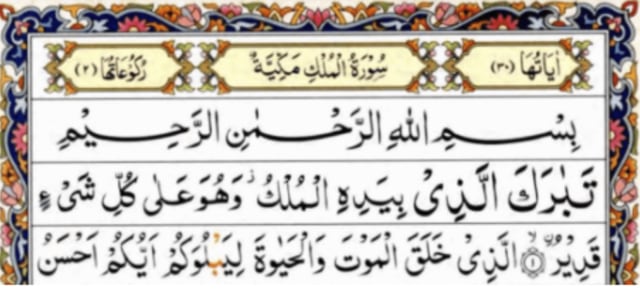 اٰيَاتُهَا (٣٠) سُوْرَةُ الْمُلْكِ مَكِّيَّةٌ رُكُوْعَاتُهَا (٢)
بِسْمِ اللهِ الرَّحْمٰنِ الرَّحِيْمِ
تَبٰرَكَ الَّذِىْ بِيَدِهِ الْمُلْكُ ۫ وَهُوَ عَلٰى كُلِّ شَىْءٍ
قَدِيْرُ ۙ﴿١﴾ اۨلَّذِىْ خَلَقَ الْمَوْتَ وَالْحَيٰوةَ لِيَبْلُوَكُمْ اَيُّكُمْ اَحْسَنُ